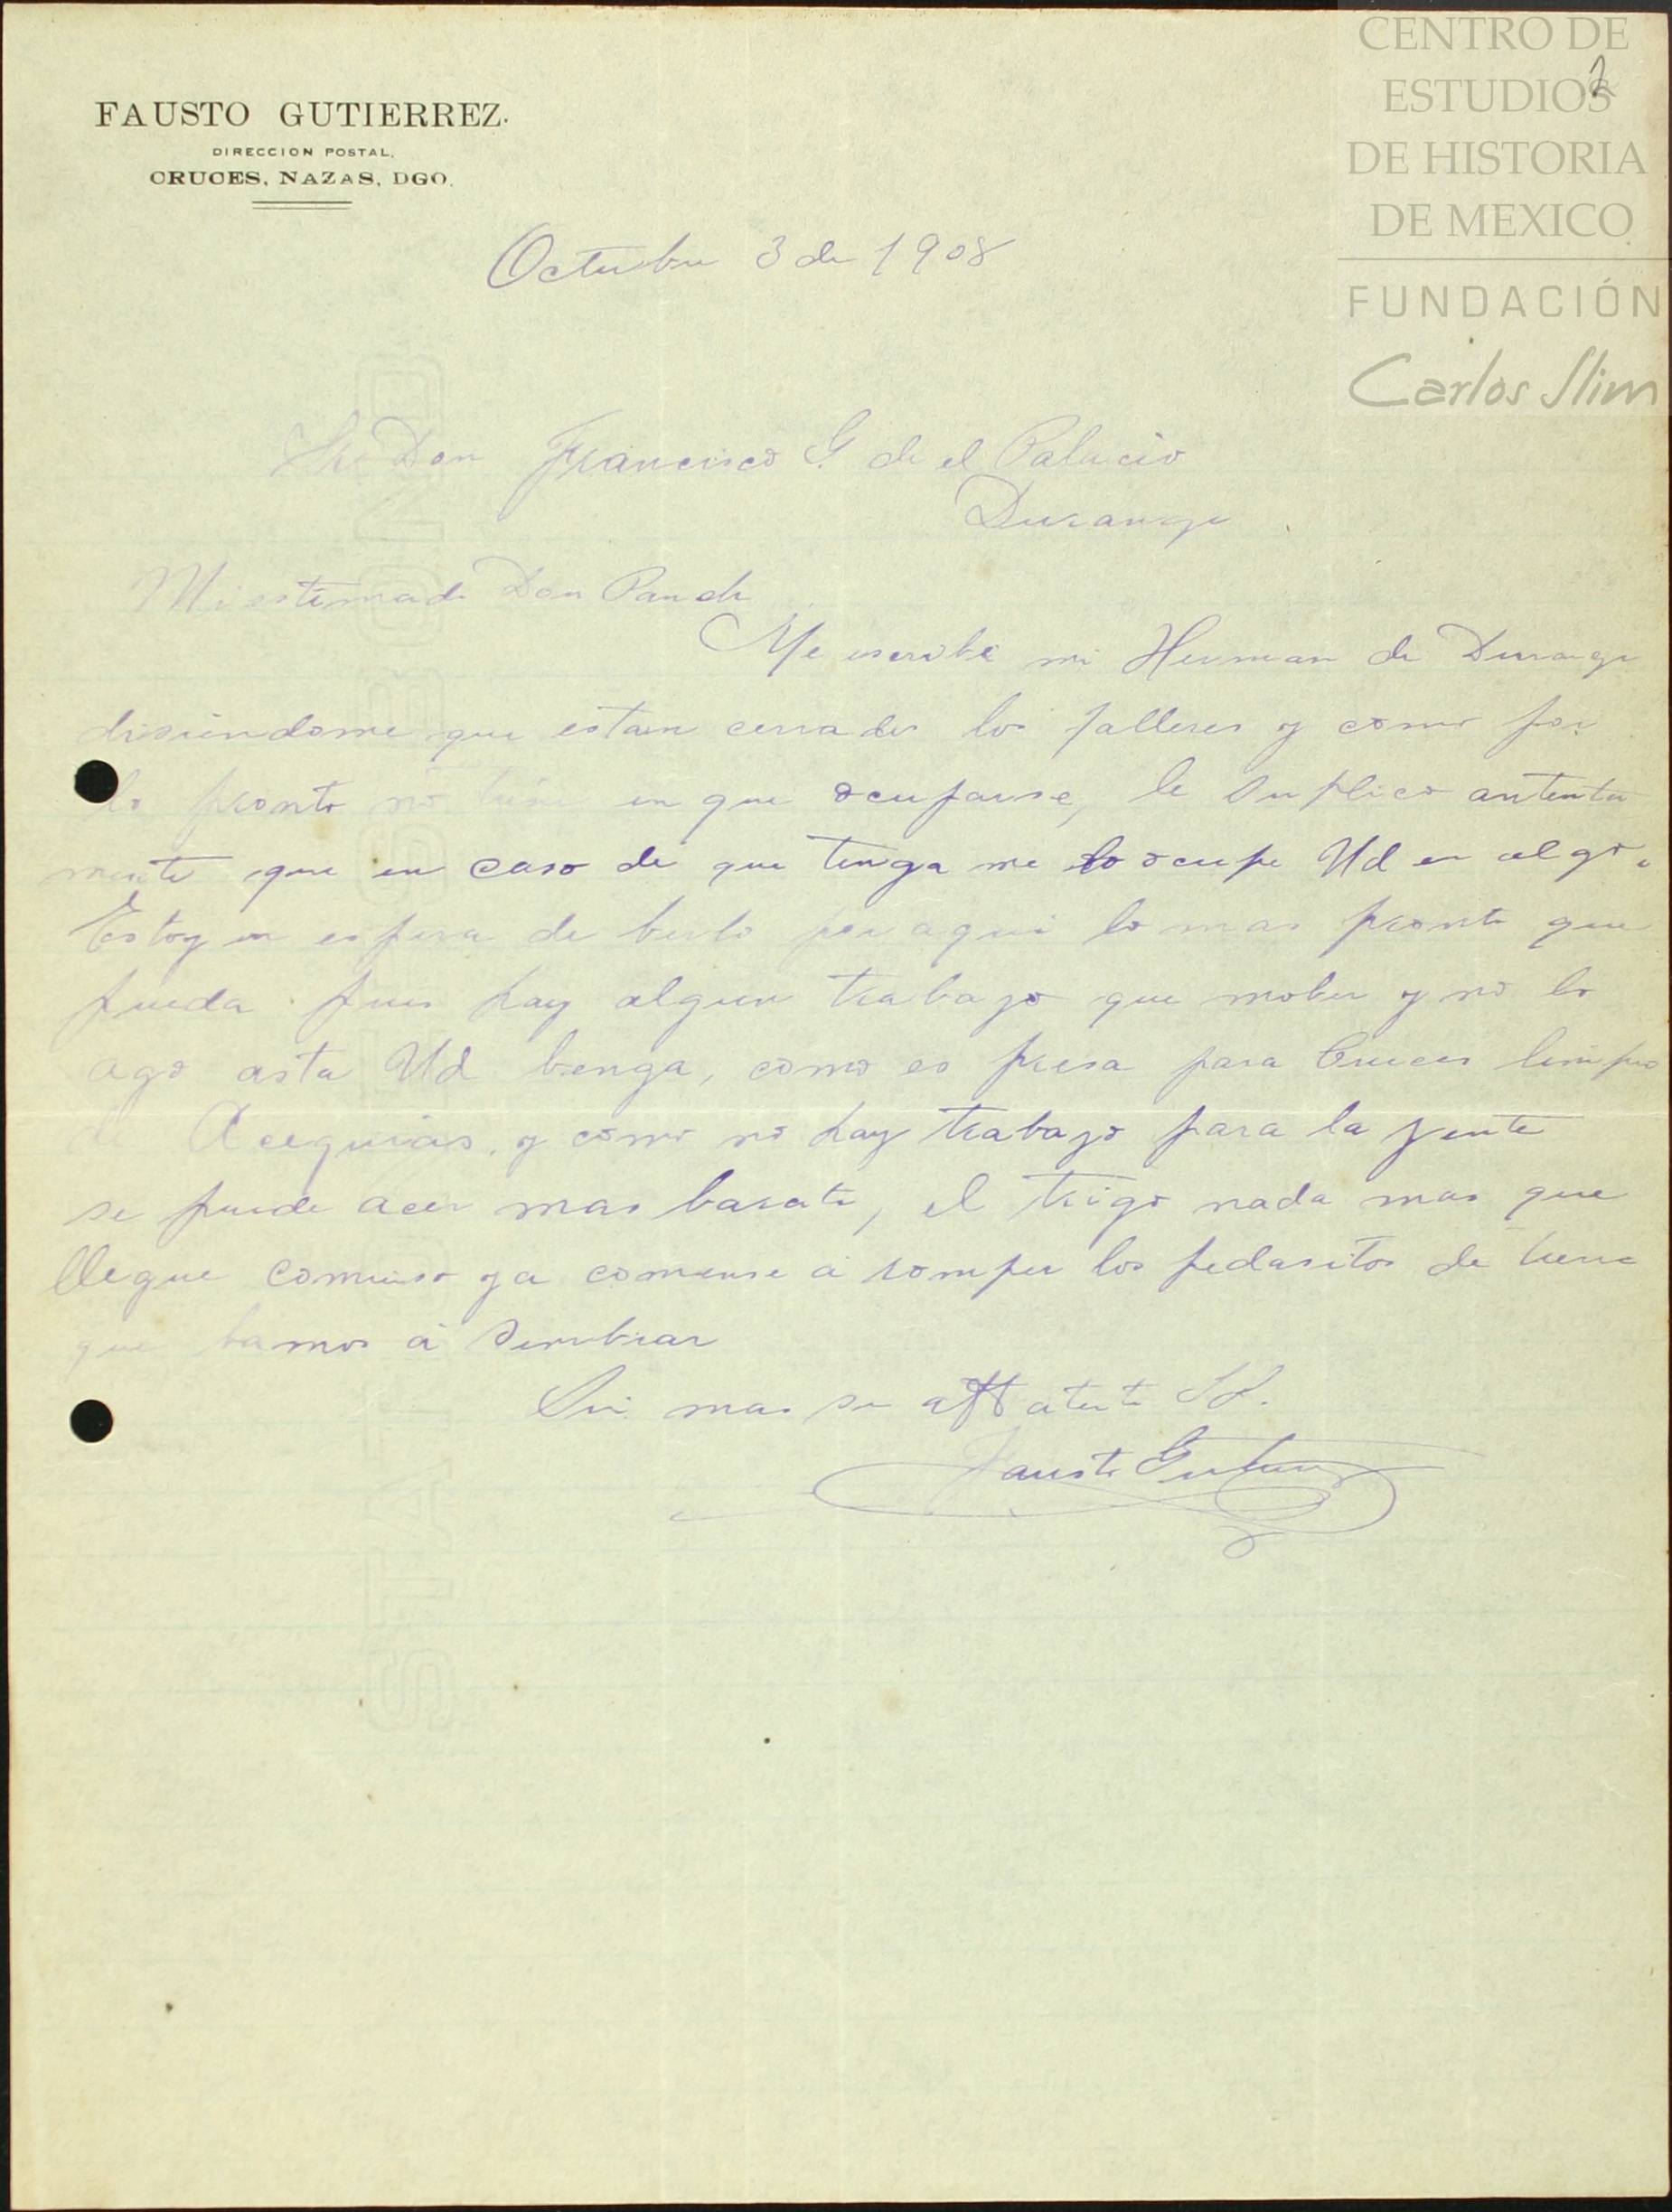 CENTRO DE
ESTUDIOS
DE HISTORIA
DE MEXICO
FUNDACIÓN
Carlos Slim
2
FAUSTO GUTIERREZ.
DIRECCION POSTAL,
CRUCES, NAZAS, DGO.
Octubre 3 de 1908
Sr Don Francisco G. de el Palacio
Durango
Mi estimado Don Pancho
Me escribe mi Hermano de Durango
disiendome que estan cerrados los talleres y como por
lo pronto no tiene en que ocuparse, le suplico antenta
mente que en caso de que tenga me lo ocupe Ud en algo.
Estoy en espera de berlo por aqui lo mas pronto que
pueda pues hay algun trabajo que mober y no lo
ago asta Ud benga, como es presa para Cruces limpia
de Acequias, y como no hay trabajo para la jente
se puede acer mas barato, el trigo nada mas que
llegue comienso ya comense á romper los pedasitos de tierra
que bamos á sembrar
Sin mas su aftto atento SS.
Fausto Gutierrez